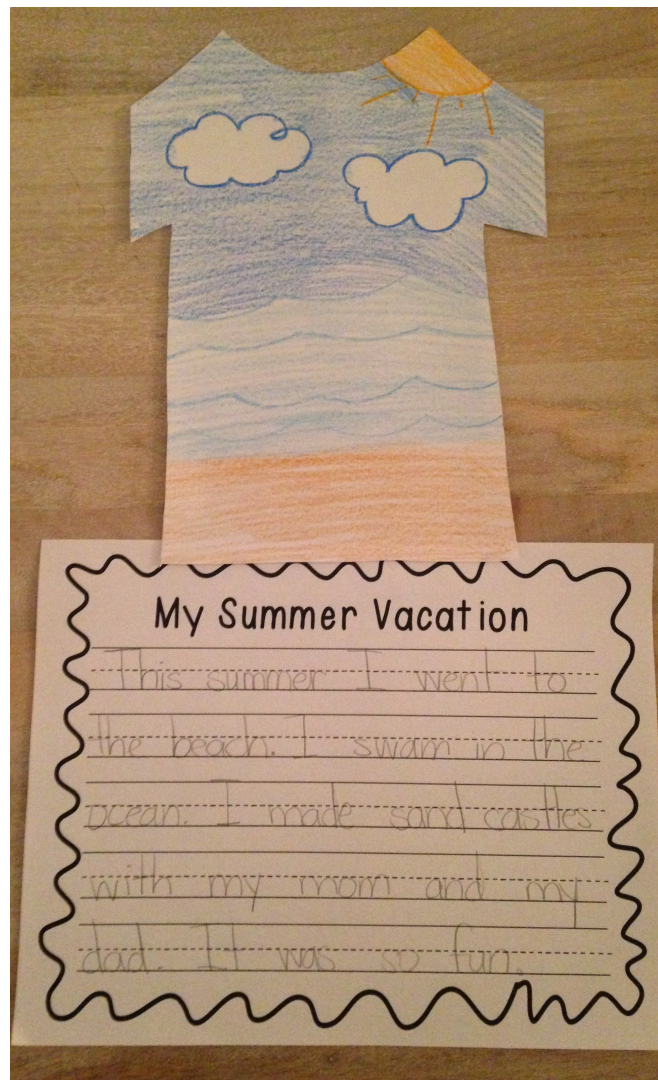 My Summer Vacation
This summer I went to
the beach. I swam in the
ocean. I made sand castles
with my mom and my
dad. It was so fun.